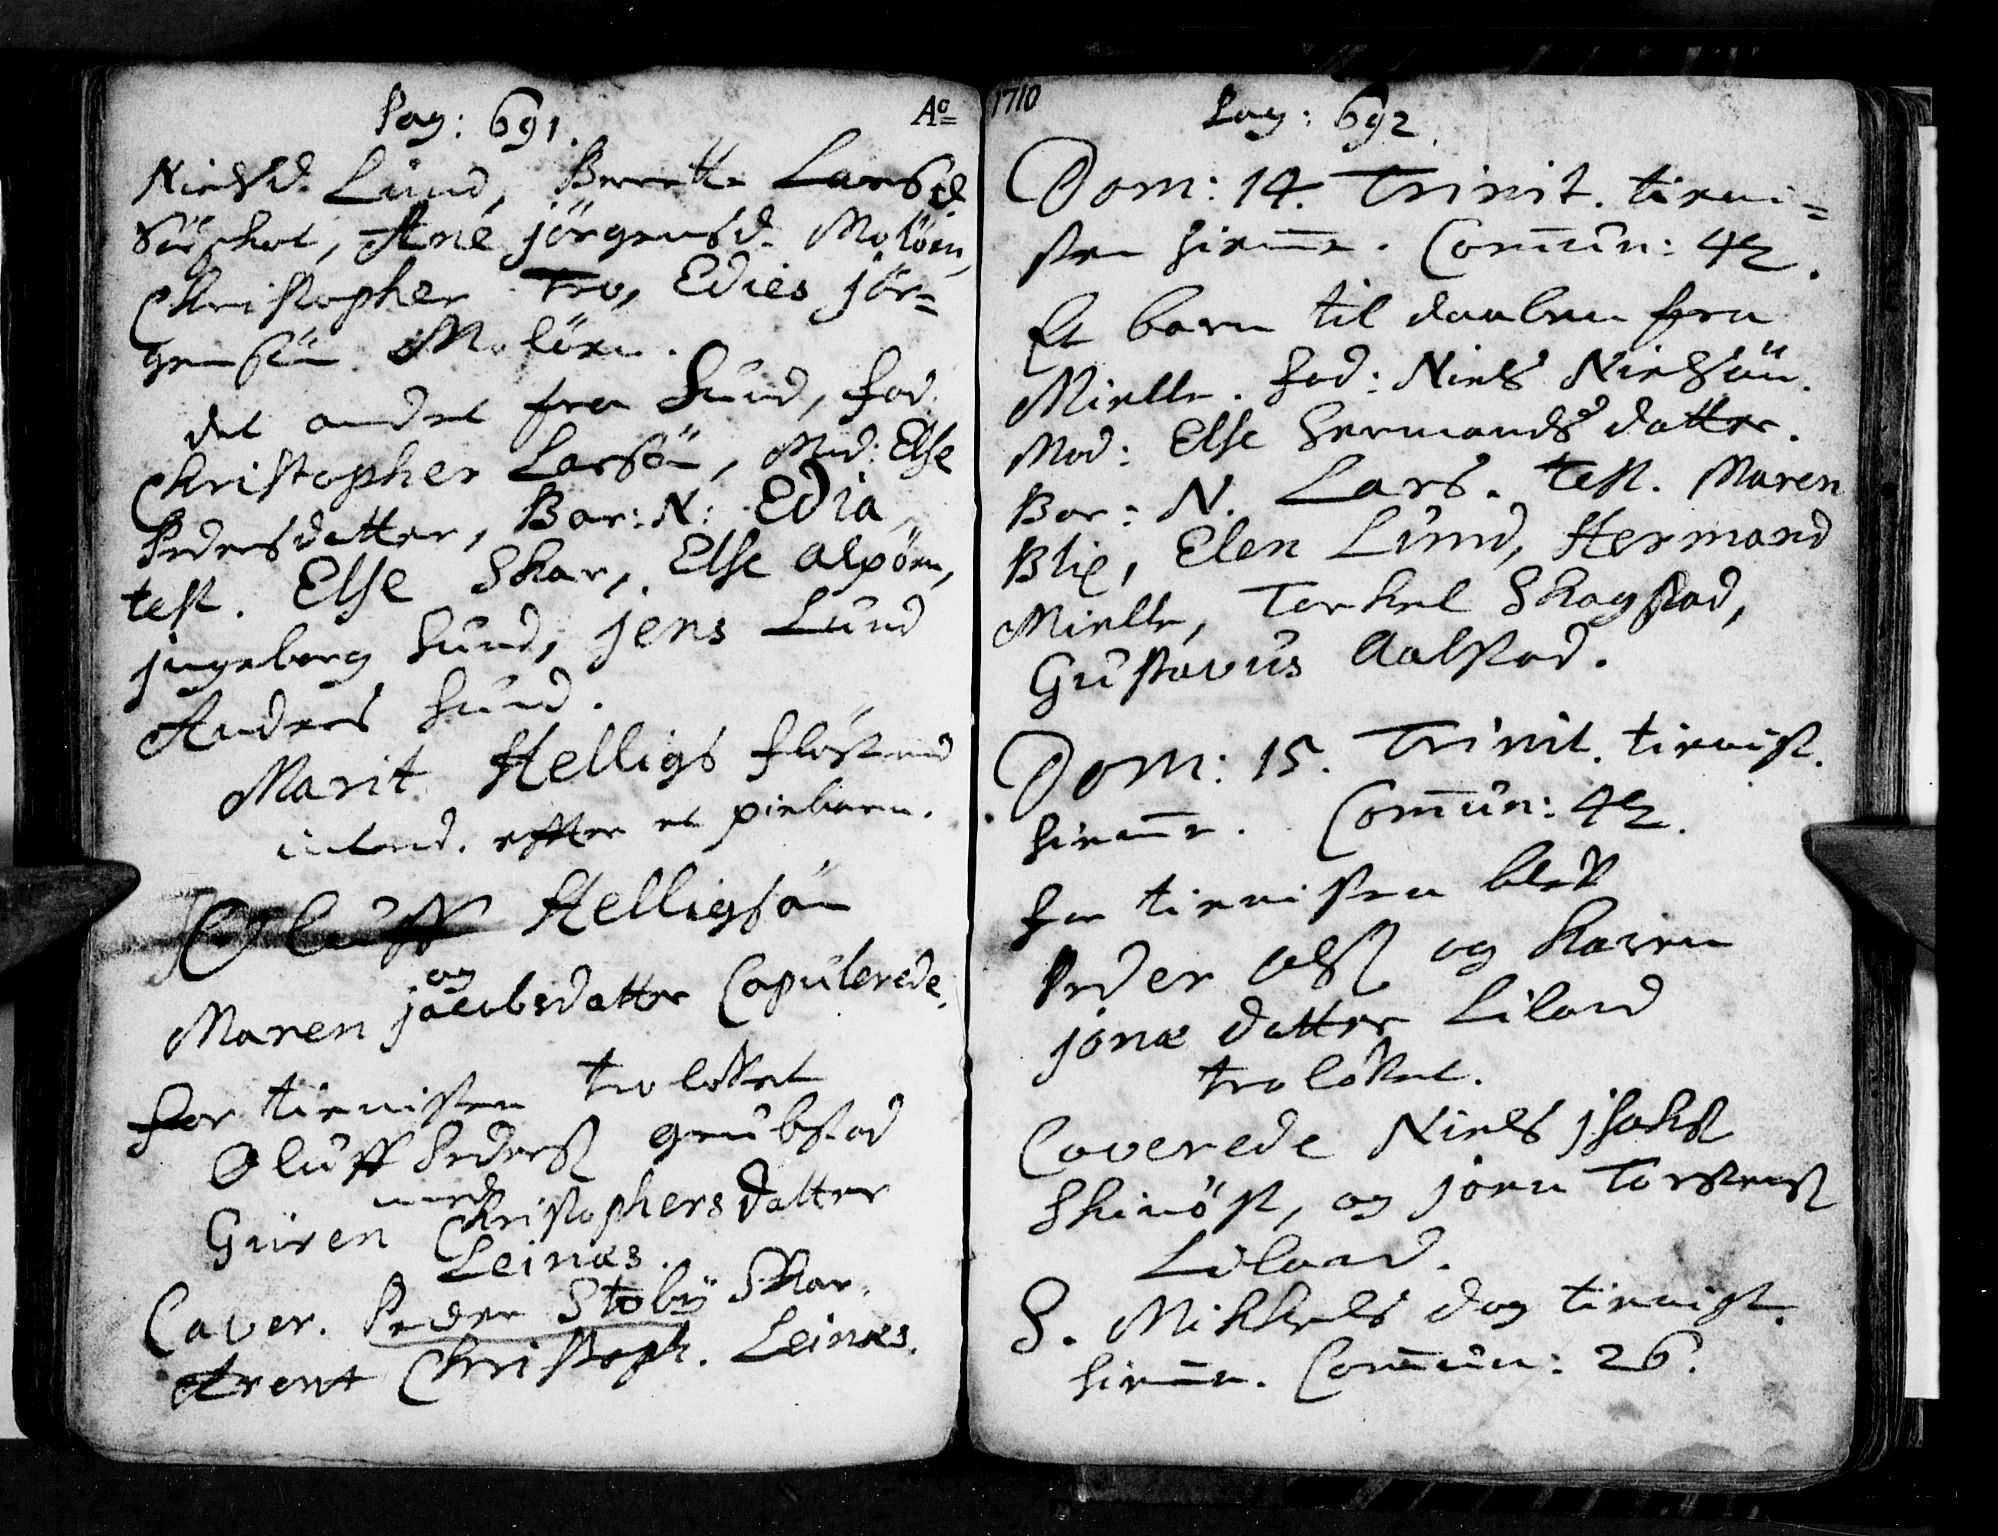 Pag: 691.
Aō
Nielsd. Lund, Beretthe Larsd
Christopher Tro, Edies jör=
gensön Moløen.
det andet fra Sund, fad.
Christopher Larsön, Mod: Else
Pedersdatter, Bar: N: Edia
test. Else Skar, Else alpøen,
jngeborg Sund, jens Lund
Anders Sund.
Marit Helligs Fløstrand
introd. effter et piebarn.
Oluff Helligsön
og
Maren jacobsdatter Copulerede.
for tienisten trolofvet
Oluff Pederss Grubstad
med
Guren Christophersdatter
Leines.
Caver. Peder Stoby Skar.
Arent Christoph. Leines.
1710
Pag: 692.
Dom: 14. Trinit. tieni=
sten hiemme. Com̄un: 42.
Et barn til daaben fra
Mielle. fad: Niels Nielsön.
Mod: Else Hermandsdatter.
Bar: N. Lars. test. Maren
Blix, Elen Lund, Hermand
Mielle, Torkel Skagstad,
Gustavus Aalstad.
Dom: 15. Trinit. tienist.
hiemme. Com̄un: 42.
for tienisten blef
Peder Olss og Karen
jonædatter Liland
trolofvet.
Caverede Niels jsakss
Skinöst, og joen Torstenss
Liland.
S. Mikkels dag tienist.
hiemme. Com̄un: 26.